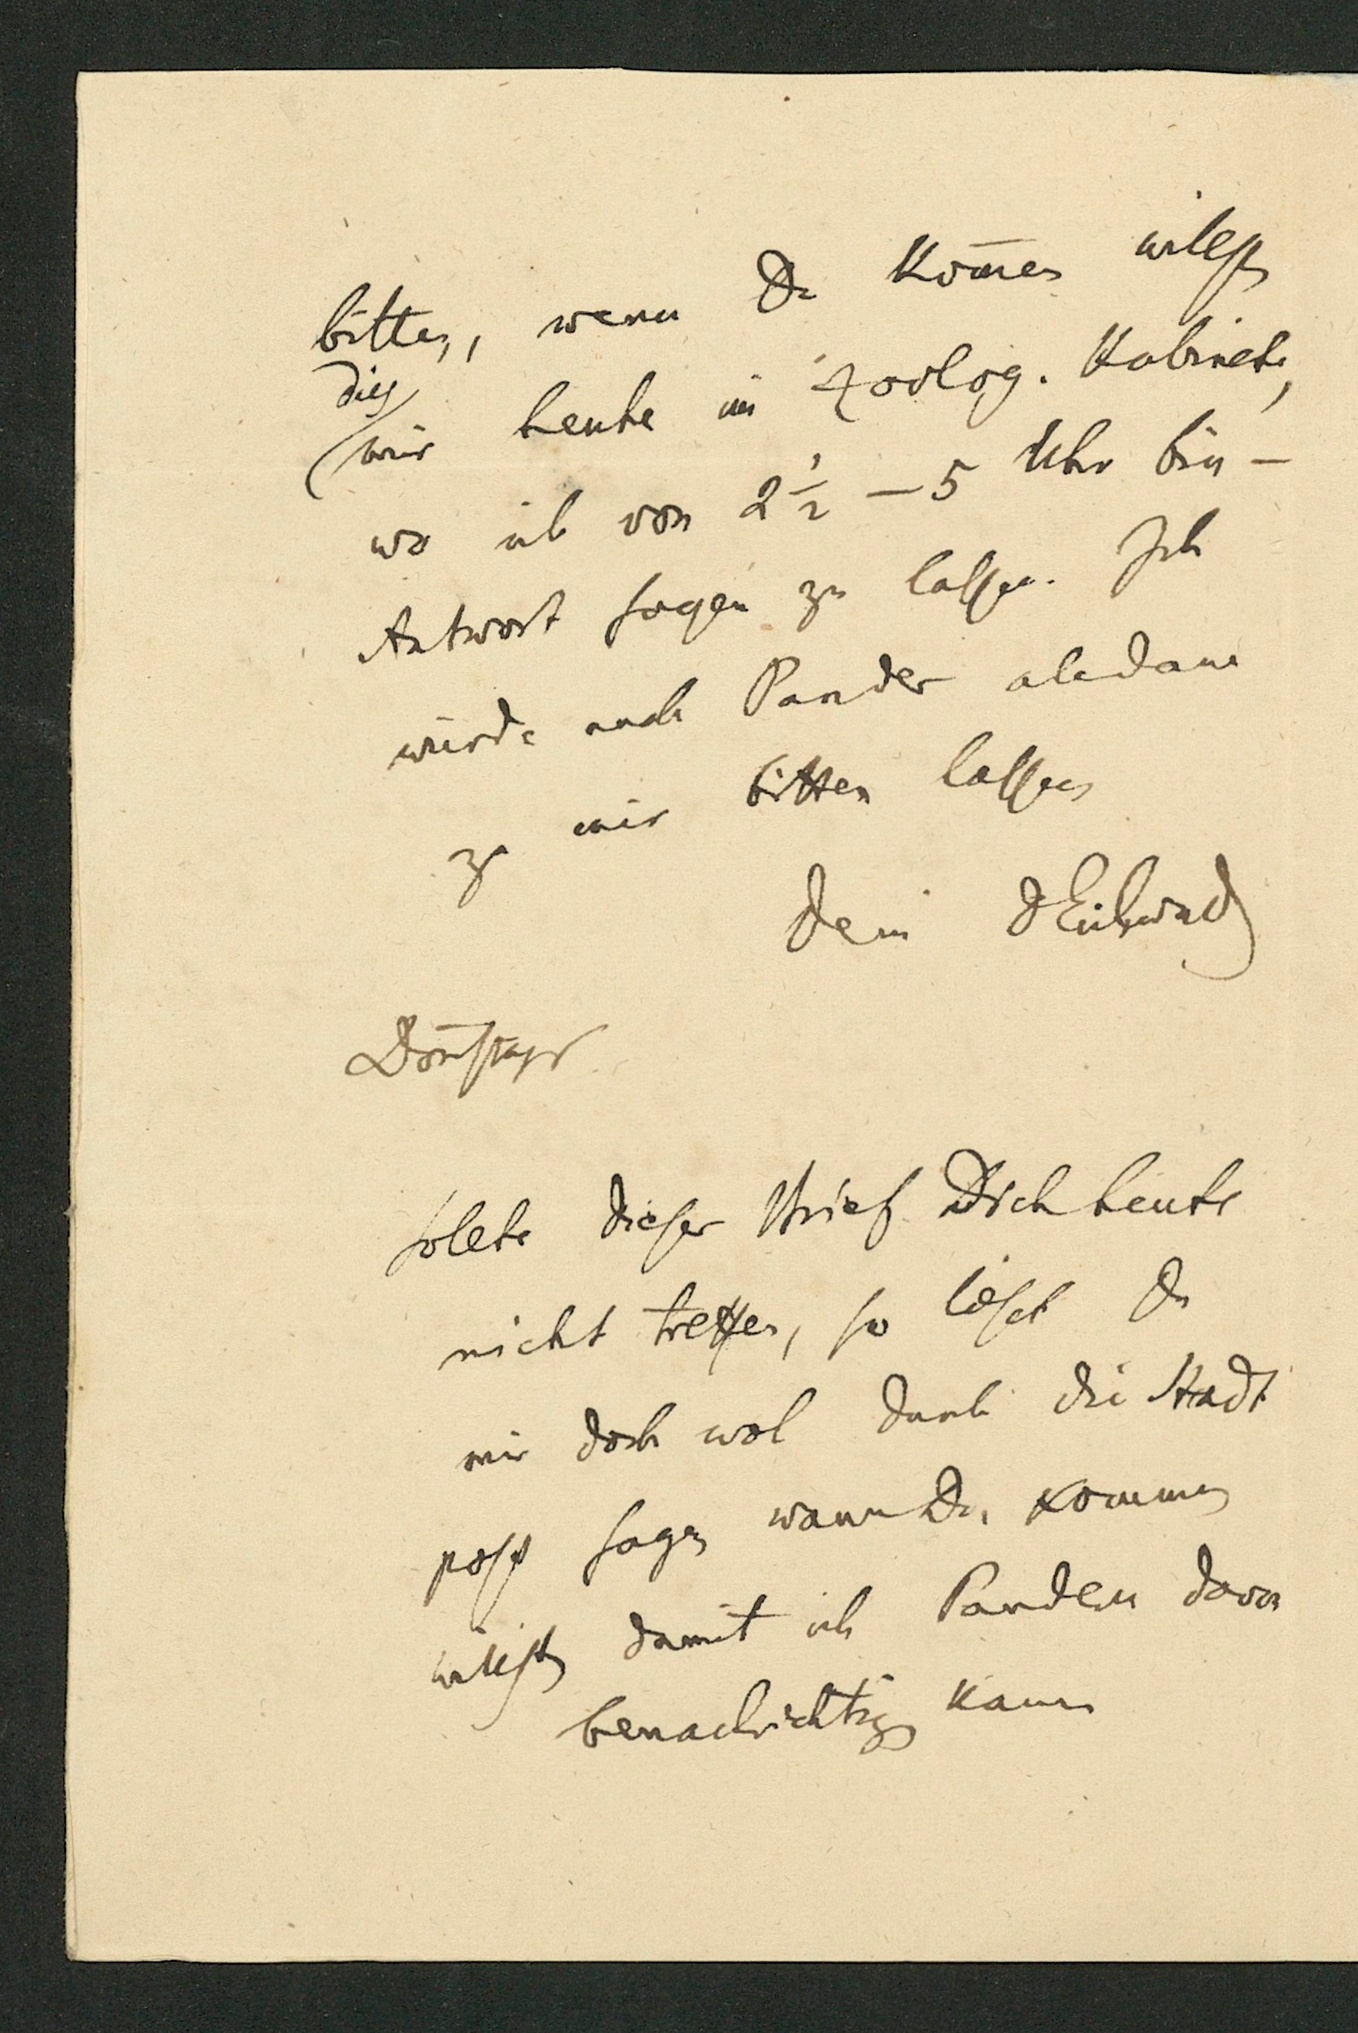 bitten, wenn Du kom̄en willst
dies
mir heute im zoolog. Kabinete,
wo ich von 2 1/2 – 5 Uhr bin –
Antwort sagen zu lassen. Ich
würde auch Pander alsdann
zu mir bitten lassen
Dein DEichwald
Don̄stags
sollte dieser Brief Dich heute
nicht treffen, so läßt Du
mir doch wol durch die Stadt
post sagen wann Du kommen
willst, damit ich Pandern davon
benachrichtigen kann